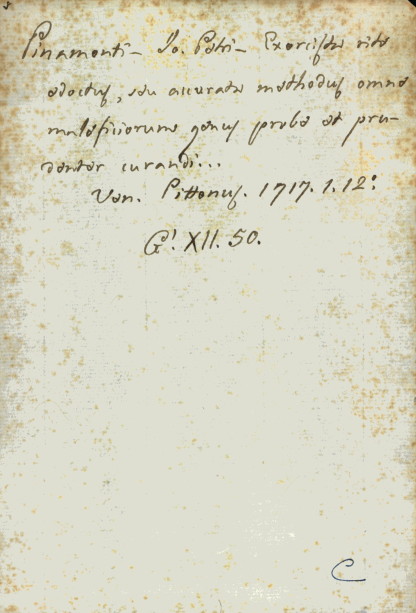 Pinamonti - Jo. Petri - Exorcista rite
edoctus, seu accurata methodus omne
maleficiorum genus probe et pru-
denter curandi...
Ven. Pittonus. 1717. 1. 12º
G¹. XII. 50.
C